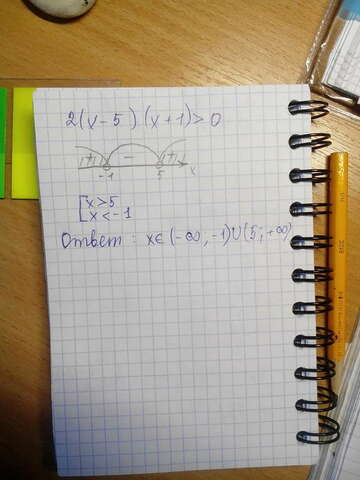 2(x-5)(x+1)>0
+ - +
-1 5 x
[x>5
x<-1
Ответ: x∈(-∞,-1)∪(5;+∞)